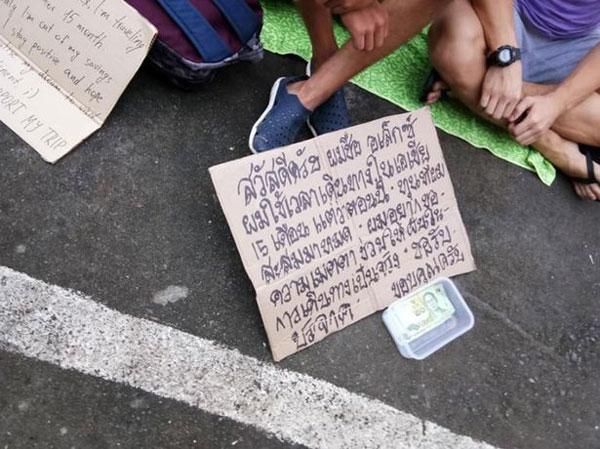 I'm traveling
15 month
I'm out of my savings
stay positive and hope
PORT MY TRIP
สวัสดีครับ ผมชื่อ อเล็กซ์
ผมใช้เวลาเดินทางในเอเชีย
15 เดือน แต่ว่าตอนนี้ ทุนที่ผม
สะสมมาหมด ผมอยากขอ
ความเมตตา ช่วยให้ฝันใน
การเดินทางเป็นจริง ขอรับ
บริจาค ขอบคุณครับ